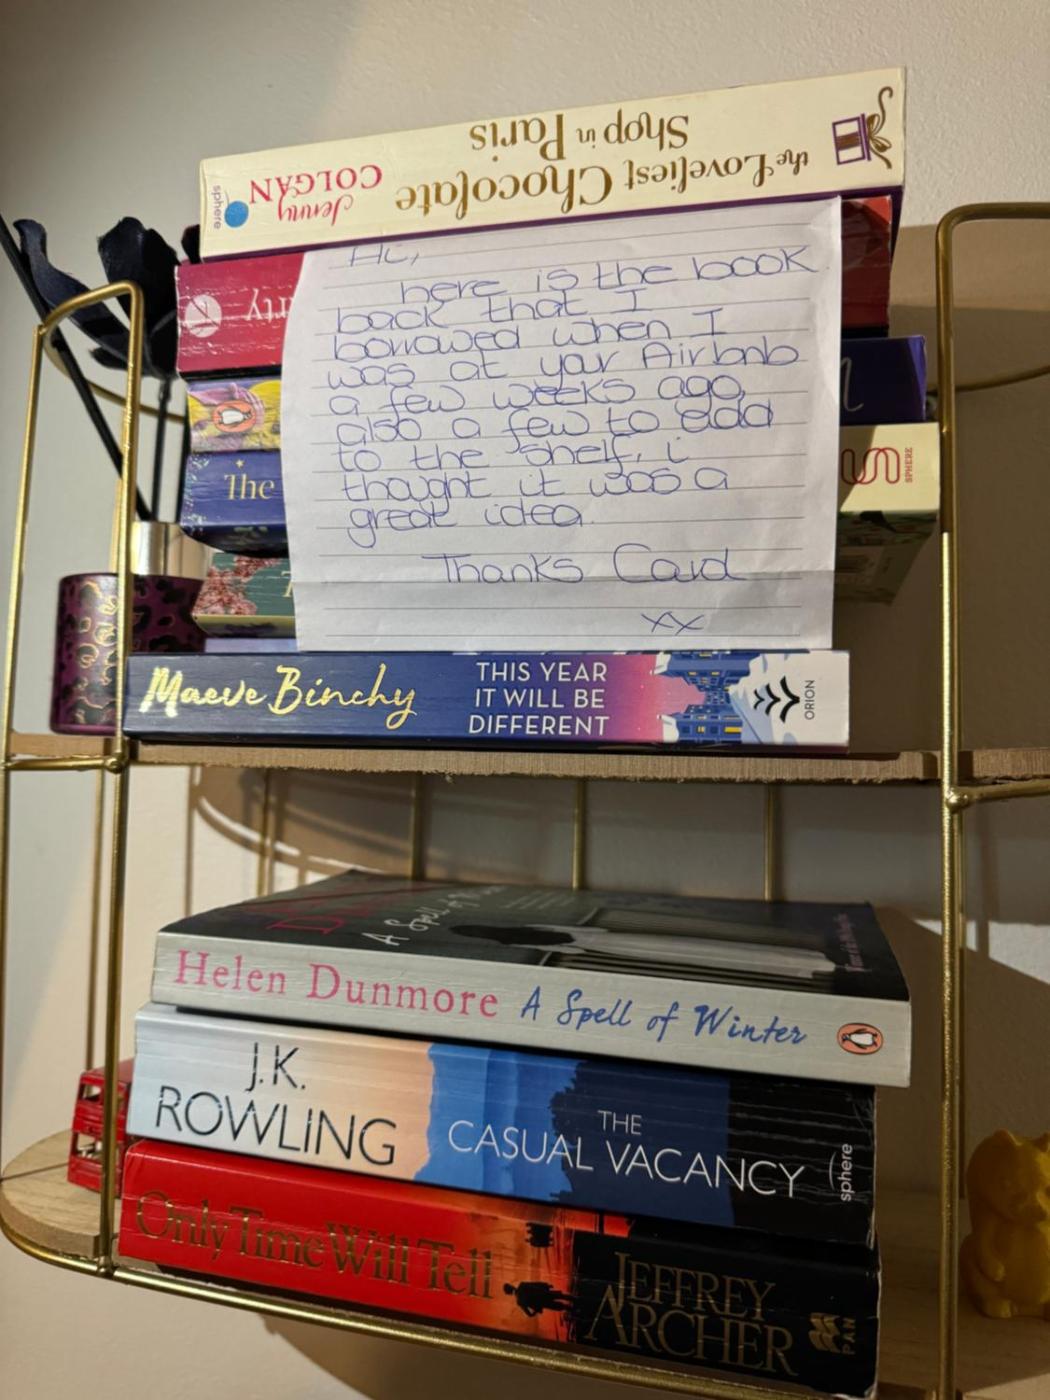 the Loveliest Chocolate
Shop in Paris
Jenny
COLGAN
sphere
Hi,
here is the book
back that I
borrowed when I
was at your Airbnb
a few weeks ago,
also a few to add
to the shelf, i
thought it was a
great idea.
Thanks Carol
xx
The
SPHERE
Maeve Binchy
THIS YEAR
IT WILL BE
DIFFERENT
ORION
Helen Dunmore A Spell of Winter
J.K.
ROWLING
THE
CASUAL VACANCY
sphere
Only Time Will Tell
JEFFREY
ARCHER
PAN